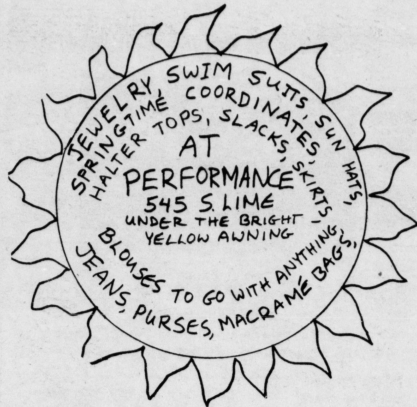 JEWELRY, SWIM SUITS, SUN HATS,
SPRINGTIME COORDINATES,
HALTER TOPS, SLACKS, SKIRTS,
AT
PERFORMANCE
545 S. LIME
UNDER THE BRIGHT
YELLOW AWNING
BLOUSES TO GO WITH ANYTHING,
JEANS, PURSES, MACRAMÉ BAGS,